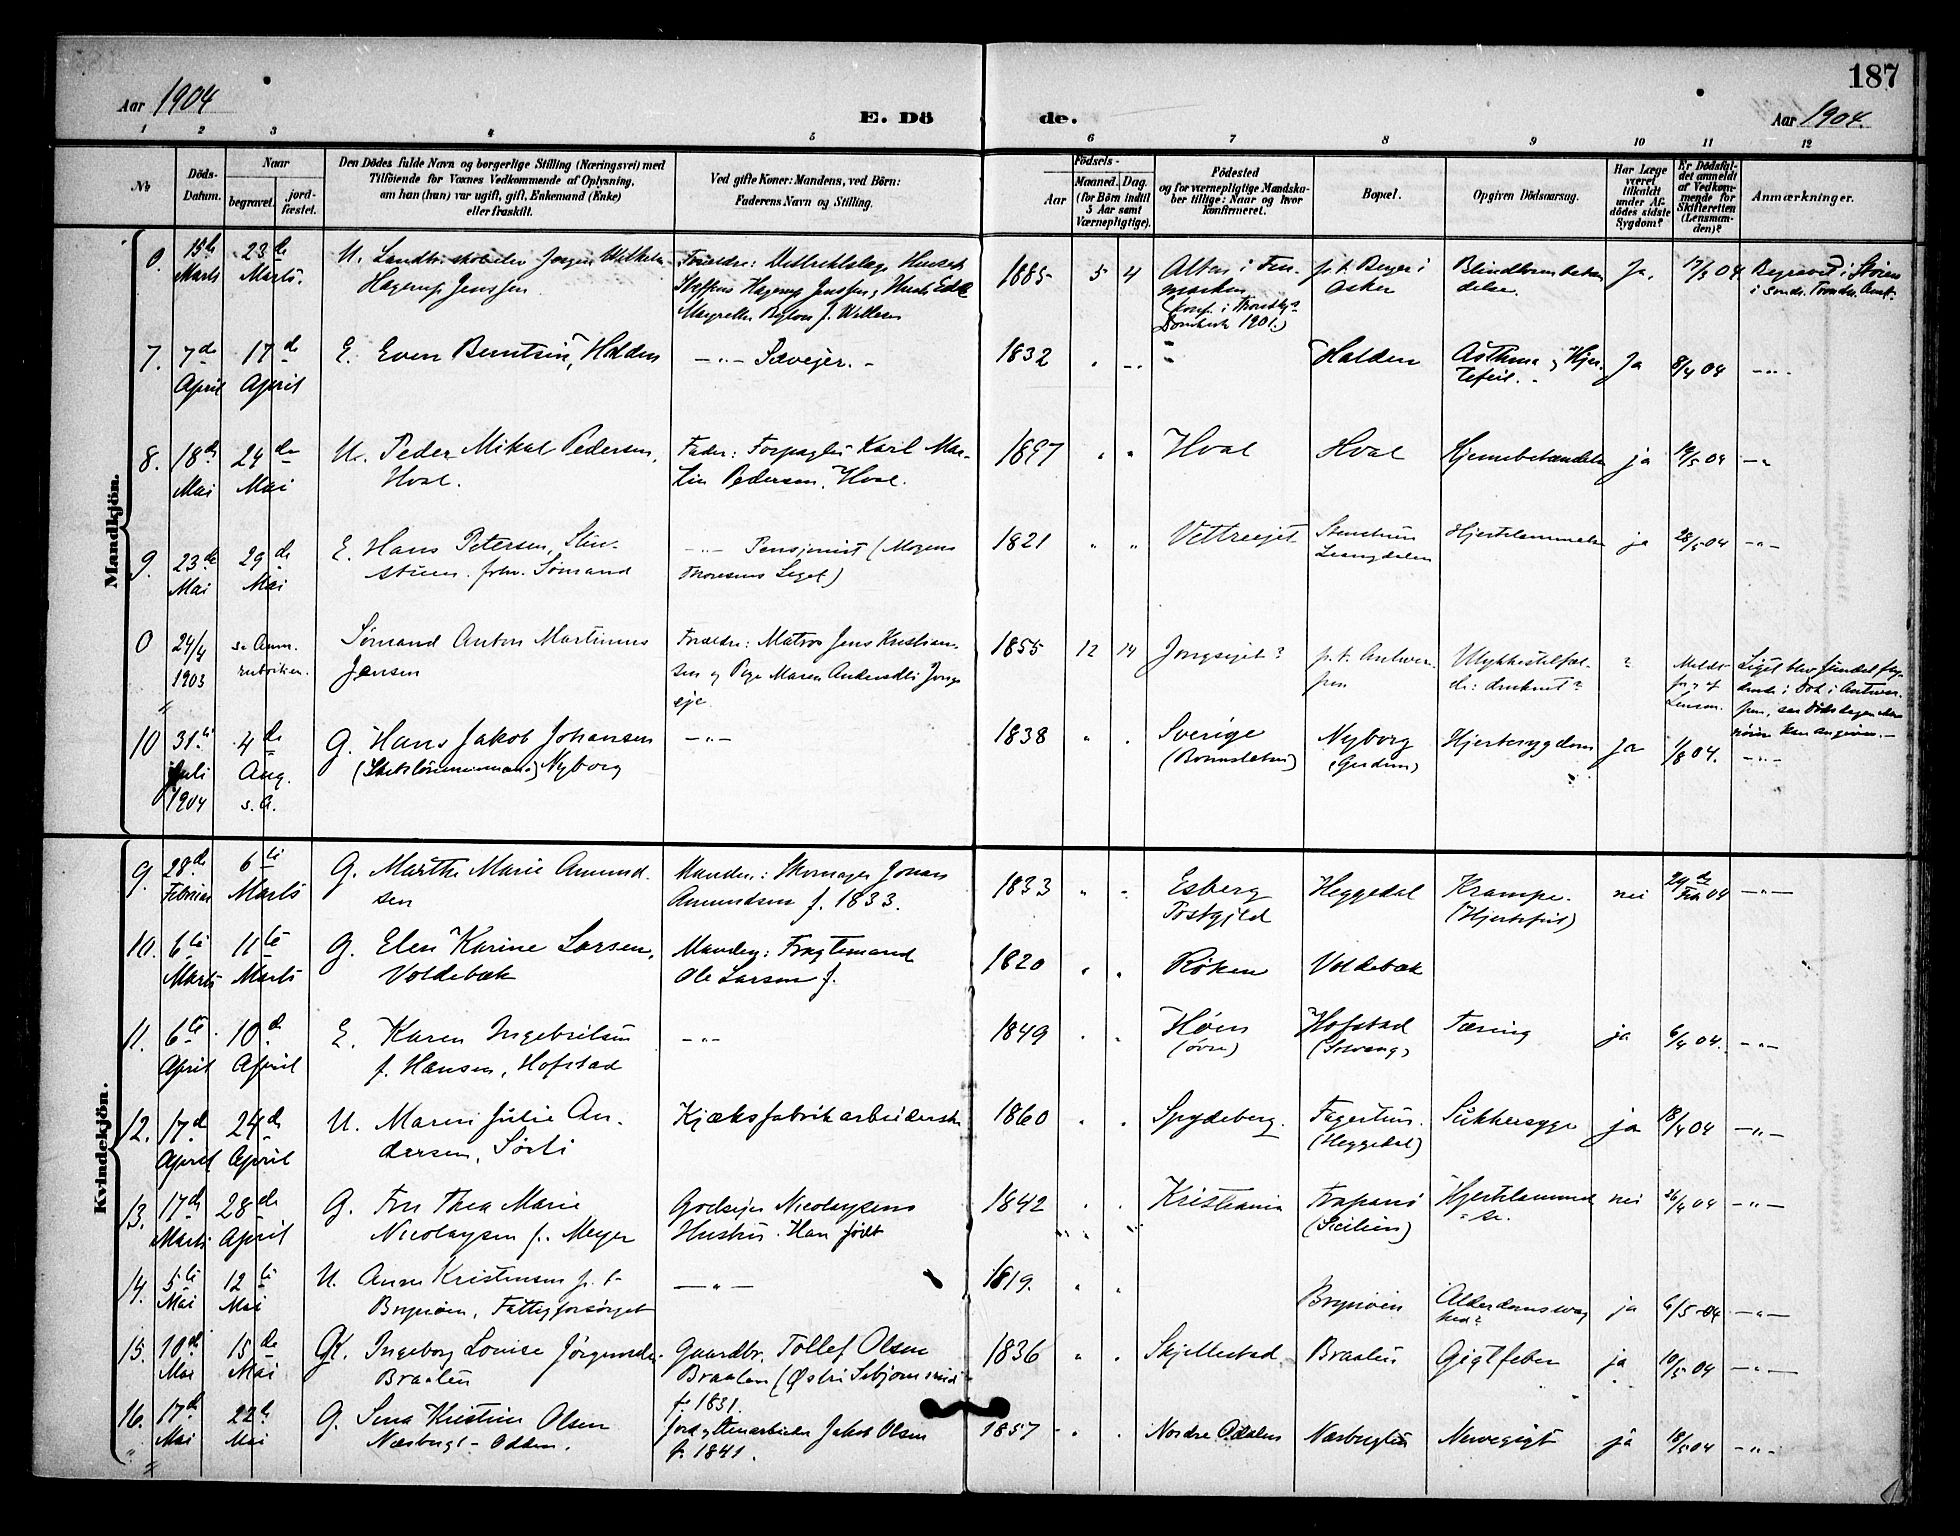 187
Aar 1904
E. Dö
de.
Aar 1904.
1 2 3 4 5 6 7 8 9 10 11 12
No
Döds-
Datum.
Naar
begravet.
jord-
fæstet.
Den Dödes fulde Navn og borgerlige Stilling (Næringsvei) med
Tilföiende for Voxnes Vedkommende af Oplysning,
om han (hun) var ugift, gift, Enkemand (Enke)
eller fraskilt.
Ved gifte Koner: Mandens, ved Börn:
Faderens Navn og Stilling.
Födsels-
Aar
Maaned. Dag.
(for Börn indtil
5 Aar samt
Værnepligtige).
Födested
og for værnepligtige Mandska-
ber tillige: Naar og hvor
konfirmeret.
Bopæl.
Opgiven Dödsaarsag.
Har Læge
været
tilkaldt
under Af-
dödes sidste
Sygdom?
Er Dödsfal-
det anmeldt
af Vedkom-
mende for
Skifteretten
(Lensman-
den)?
Anmærkninger.
Mandkjön.
0. 15de Marts 23de Marts.
U. Jørgen Wilhelm
Hagerup Jenssen
Steffens Hagerup Jenssen, Hustr.
1885 5 4
Alten i Fin-
marken
(konf. i Trondhj.
Domkirke 1901.)
p.t. Berger i
Asker
Blindtarmbeten
delse.
Ja.
17/3 04
Begravet i Støren
i søndr. Trondhj. Amt.
7. 7de April 17de April
E. Even Berntsen, Halden
— " — Sæveier. —
1832
Halden
Asthma og Hjer-
tefeil.
Ja
8/4 04
— " —
8. 18de Mai 24de Mai
U. Peder Mikal Pedersen,
Hval.
Fader: Forpagter Karl Mar-
tin Pedersen, Hval.
1897 " "
Hval
Hval
Hjernebetændelse
ja
19/5 04
— "
9. 23de Mai 29de Mai
E. Hans Petersen, Sten-
sturen. forhv. Sømand
— " — Pensionist (Mogens
Thoresens Legat)
1821 " "
Vettreeiet
Leangdalen
Hjertelammelse
ja
28/5 04
— " —
0 24/4 1903
se Anm.
rubriken.
Sømand Anton Martinius
Jensen
Forældre: Matros Jens Kristian-
sen og Pige Maren Andersdtr. Jongs
eje
1855 12 14
Jongsejet?
p.t. Antwer-
pen
Ulykkestilfæl-
de: druknet?
?
Meldt
Lensm.
Liget blev fundet
i Antwer-
pen,
10 31te Juli 1904 4de Aug. s. A.
G. Hans Jakob Johansen
Nyborg
— " —
1838 " "
Sverige
Nyborg
Hjertesygdom
Ja
1/8 04.
— " —
Kvindekjön.
9. 28de Februar 6te Marts
G. Marthe Marie Amund-
sen
Manden: Skomager Johan
Amundsen f. 1833.
1833 " "
Esberg
Postgjeld
Heggedal
Krampe.
(Hjertefeil)
nei
29de Feb 04
— " —
10. 6te Marts 11te Marts
G. Elen Karine Larsen,
Voldebæk
Manden: Fragtemand
Ole Larsen f.
1820 " "
Røken
Voldebæk
11. 6te April 10de April
E. Karen Ingebrigtsen
f. Hansen, Hofstad
— " —
1849 " "
Høn
(øvre)
Hofstad
(Solvang)
Tæring
ja
6/4 04.
— " —
12. 17de April 24de April
U. Maren Julie An-
dersen, Sørli
Kjæksfabrikarbeiderske
1860 " "
Spydeberg.
(Heggedal)
Sukkersyge
ja
18/4 04
— " —
13. 17de Marts 28de April
G. Fru Thea Marie
Nicolaysen f. Meyer
Godseier Nicolaysens
Hustru. Han født
1842 " "
Kristiania
Trapani
(Sicilien)
Hjertelammel-
se.
nei
26/4 04
— " —
14. 5te Mai 12te Mai
U. Anne Kristensen p. t.
Fattigforsørget
— " —
1819. " "
Alderdomssvag
hed?
ja
6/5 04
— " —
15. 10de Mai 15de Mai
G. Ingeborg Louise Jørgensdtr.
Braaten
Gaardbr. Tollef Olsen
Braaten
f. 1831.
1836 " "
Skjellestad
Braaten
Gigtfeber
ja
10/5 04
— " —
16. 17de Mai 22de Mai
G. Sina Kristine Olsen
Næsbugt-Odden.
Jord og Stenarbeider Jakob Olsen
f. 1841.
1857 " "
Nordre Odalen
Næsbugten
Nervegigt
ja
18/5 04
— " —